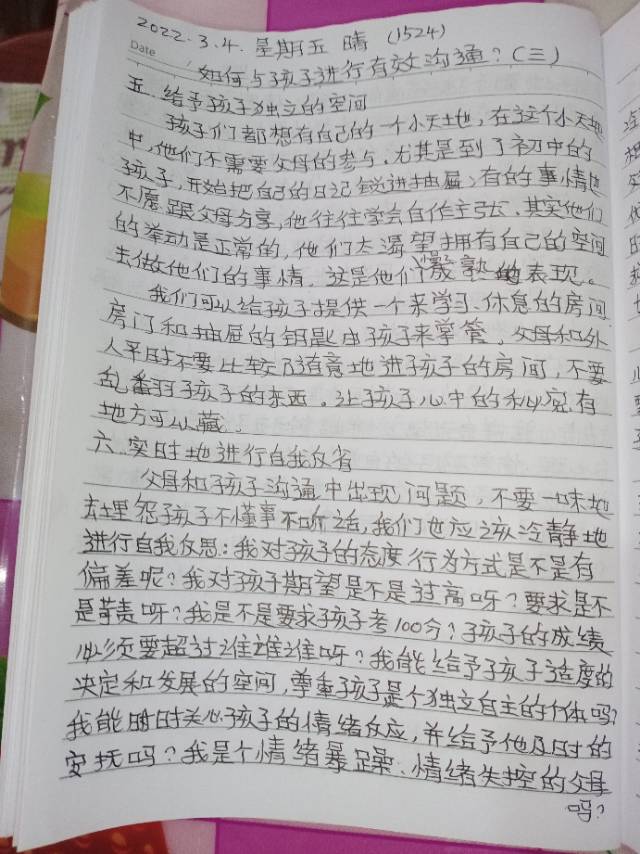 2022.3.4. 星期五 晴 (1524)
Date
如何与孩子进行有效沟通?(三)
五. 给予孩子独立的空间
孩子们都想有自己的一个小天地,在这个小天地
中,他们不需要父母的参与,尤其是到了初中的
孩子,开始把自己的日记锁进抽屉,有的事情也
不愿跟父母分享,他往往学会自作主张,其实他们
的举动是正常的,他们太渴望拥有自己的空间
去做他们的事情,这是他们渐成熟的表现。
我们可以给孩子提供一个来学习、休息的房间
房门和抽屉的钥匙由孩子来掌管,父母和外
人平时不要比较随意地进孩子的房间,不要
乱翻孩子的东西。让孩子心中的秘密有
地方可以藏。
六. 实时地进行自我反省
父母和孩子沟通中出现问题,不要一味地
去埋怨孩子不懂事不听话,我们也应该冷静地
进行自我反思:我对孩子的态度行为方式是不是有
偏差呢?我对孩子期望是不是过高呀?要求是不
是苛责呀?我是不是要求孩子考100分?孩子的成绩
必须要超过谁谁谁呀?我能给予孩子适度的
决定和发展的空间,尊重孩子是个独立自主的个体吗?
我能时时关心孩子的情绪反应,并给予他及时的
安抚吗?我是个情绪暴躁、情绪失控的父母
吗?